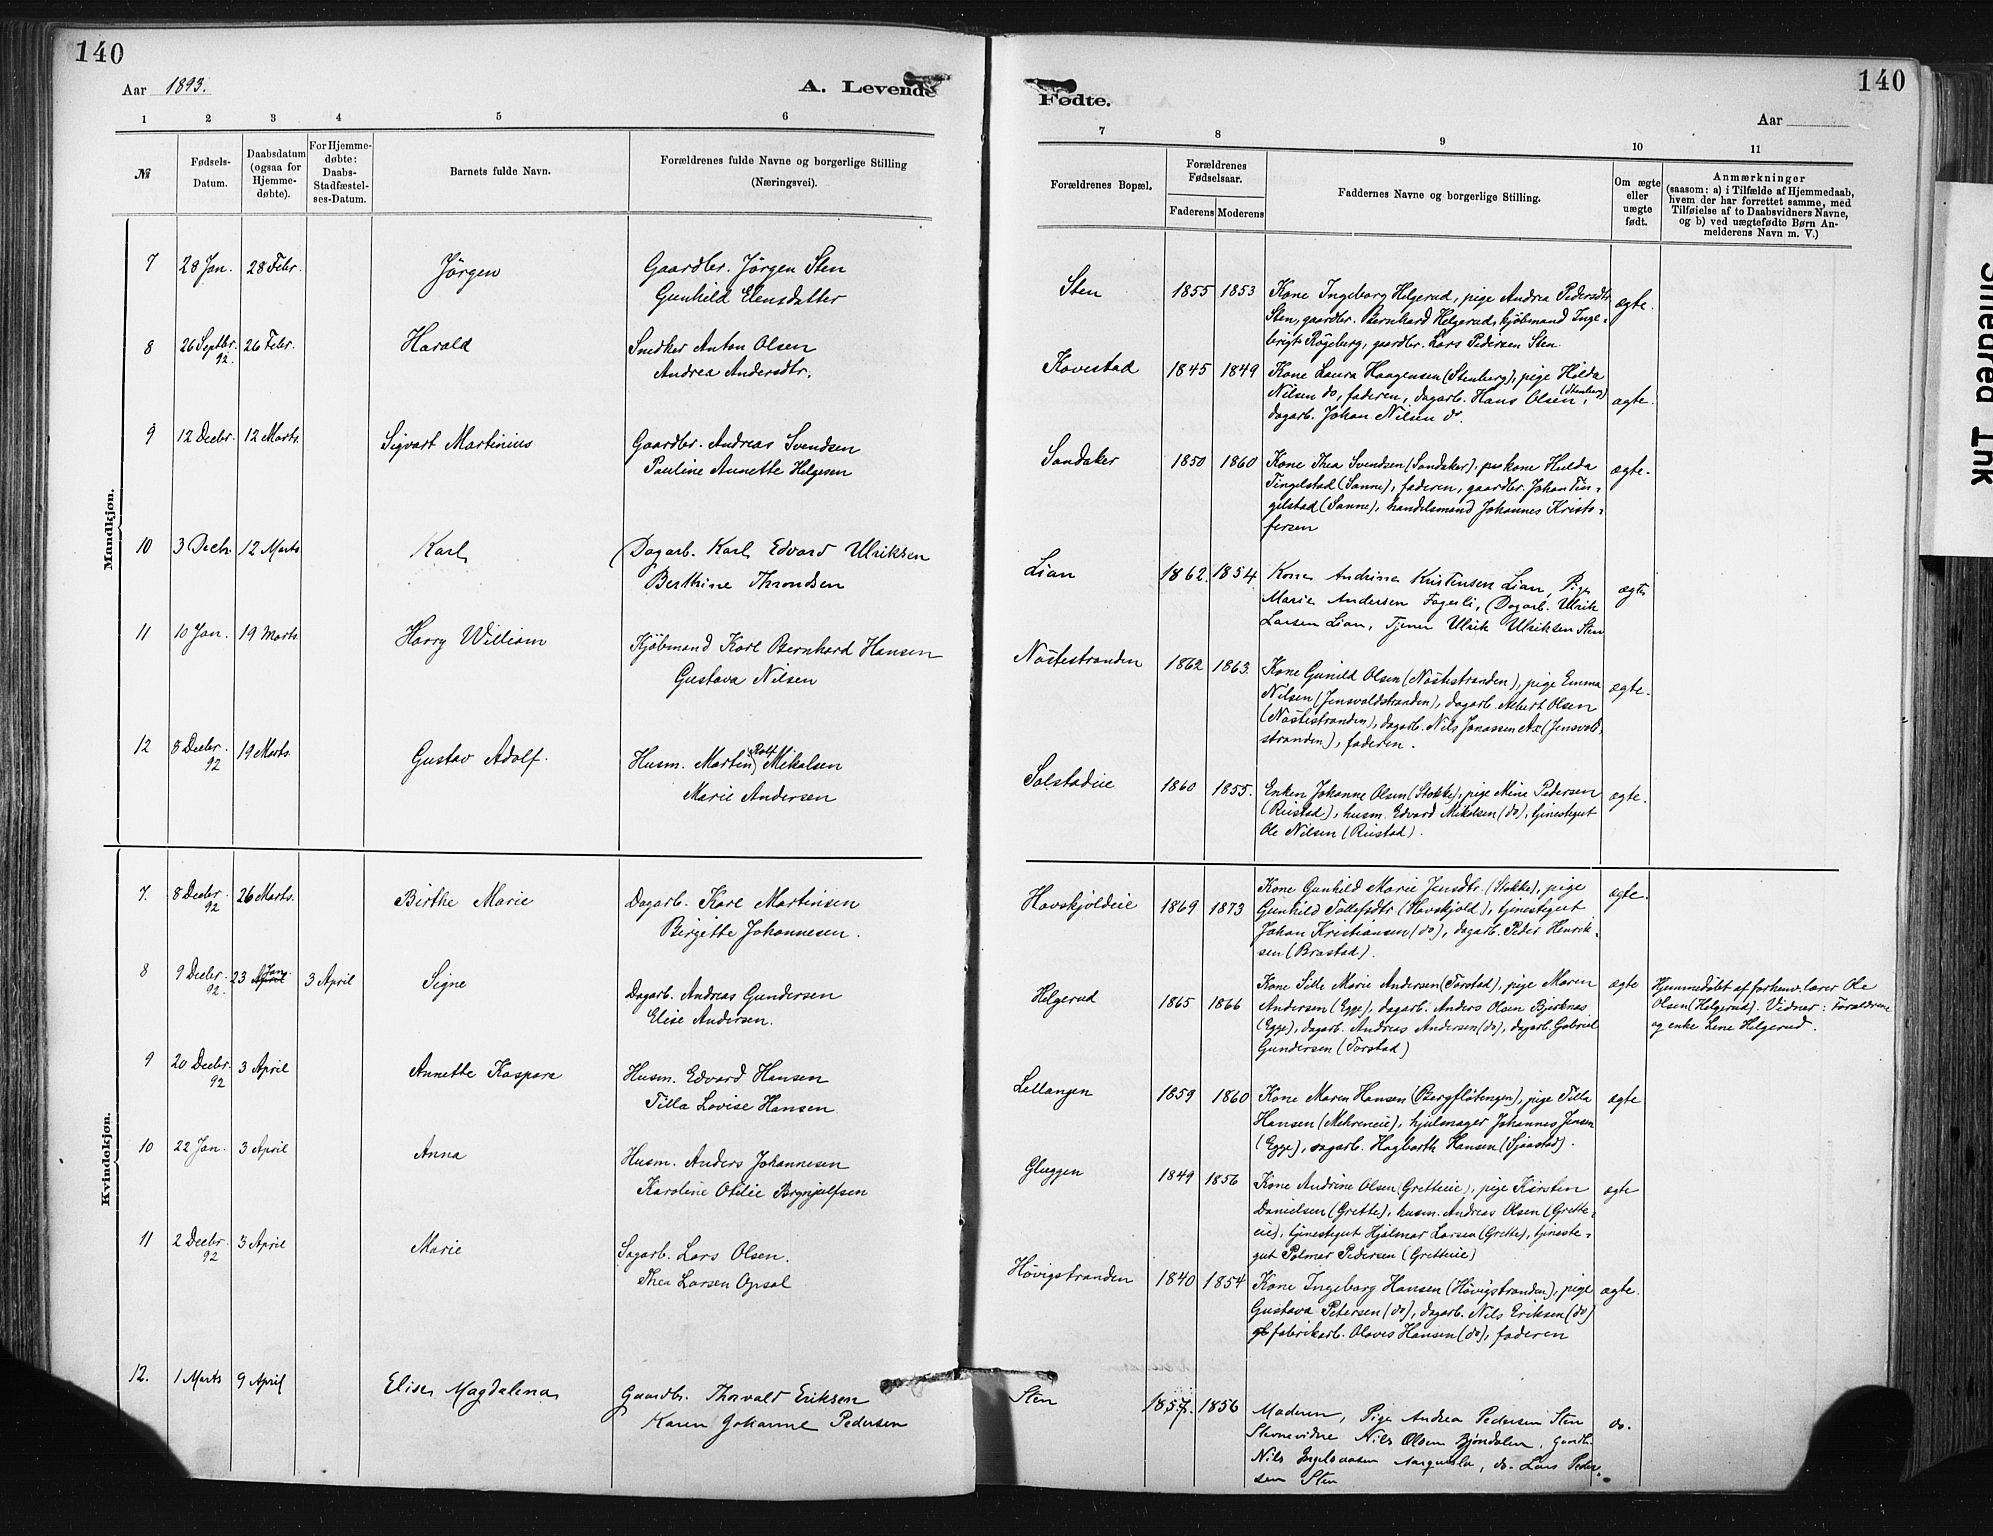 140
Aar 1893.
A. Levende
1 2 3 4 5 6
№
Fødsels-Datum.
Daabsdatum (ogsaa for Hjemmedøbte).
For Hjemmedøbte: Daabs-Stadfæstelses-Datum.
Barnets fulde Navn.
Forældrenes fulde Navne og borgerlige Stilling
(Næringsvei).
Mandkjøn.
7 28 Jan. 28 Febr. Jörgen Gaardbr. Jörgen Sten
Gunhild Elensdatter
8 26 Septbr. 92. 26 Febr. Harald Snedker Anton Olsen
Andrea Andersdtr.
9 12 Decbr. 12 Marts. Sigvart Martinius Gaardbr. Andreas Svendsen
Pauline Annette Helgesen
10 3 Decbr. 12 Marts Karl Dagarb. Karl Edvard Ulriksen
Berthine Throndsen
11 10 Jan. 19 Marts. Harry William Kjöbmand Karl Bernhard Hansen
Gustava Nilsen
12 8 Decbr. 92 19 Marts Gustav Adolf. Husm. Martin Rolf Mikalsen
Marie Andersen
Kvindekjøn.
7. 8 Decbr. 92 26 Marts. Birthe Marie Dagarb. Karl Martinsen
Birgitte Johannesen.
8 9 Decbr. 92. 23 April Jan. 3 April Signe Dagarb. Andreas Gundersen
Elise Andersen.
9 20 Decbr. 92 3 April Annette Kaspara Husm. Edvard Hansen
Tilla Lovise Hansen
10 22 Jan. 3 April Anna Husm. Anders Johannesen
Karoline Otilie Brynjulfsen
11 2 Decbr. 92 3 April Marie Sagarb. Lars Olsen.
Thea Larsen Opsal
12. 1 Marts 9 April Elise Magdalena Gaardbr. Thorvald Eriksen
Karen Johanne Pedersen
Fødte.
140
Aar
7 8 9 10 11
Forældrenes Bopæl.
Forældrenes Fødselsaar.
Faderens Moderens
Faddernes Navne og borgerlige Stilling.
Om ægte eller uægte født.
Anmærkninger
(saasom: a) i Tilfælde af Hjemmedaab,
hvem der har forrettet samme, med
Tilføielse af to Daabsvidners Navne,
og b) ved uægtefødte Børn Anmelderens Navn m. V.)
Sten 1855 1853 Kone Ingeborg Helgerud, pige Andrea Pedersdtr. ægte.
Sten, gaardbr. Bernhard Helgerud, kjöbmand Inge-
brigt Rögeberg, gaardbr. Lars Pedersen Sten.
Kovestad 1845 1849 Kone Laura Haagensen (Stenberg), pige Hilda
Nilsen do, faderen, dagarb. Hans Olsen (Stenberg), ægte.
dagarb. Johan Nilsen do.
Sandaker 1850 1860 Kone Thea Svendsen (Sandaker), kone Hulda ægte.
Tingelstad (Sanne), faderen, gaardbr. Johan Tin-
gelstad (Sanne), handelsmand Johannes Kristo-
fersen
Lian 1862. 1854 Kone Andrine Kristensen Lian, Pige ægte
Marie Andersen Fagerli, Dagarb. Ulrik
Larsen Lian, Tjener Ulrik Ulriksen Sten
Nöstestranden 1862 1863. Kone Gunild Olsen (Nöstestranden), pige Emma ægte.
Nilsen (Jensvoldstranden), dagarb. Albert Olsen
(Nöstestranden), dagarb. Nils Jonassen Ax (Jensvold-
stranden), faderen.
Solstadeie 1860 1855. Enken Johanne Olsen (Stokke), pige Mine Pedersen ægte.
(Riistad), husm. Edvard Mikalsen (do), tjenestegut
Ole Nilsen (Riistad).
Havskjöldeie 1869 1873 Kone Gunhild Marie Jensdtr. (Stokke), pige ægte.
Gunhild Tollefsdtr (Havskjold), tjenestegut
Johan Kristiansen (do), dagarb. Peder Henrik-
sen (Brastad).
Helgerud 1865 1866 Kone Sille Marie Andersen (Torstad), pige Maren ægte
Andersen (Egge), dagarb. Anders Olsen Bjerknæs
(Egge), dagarb. Andreas Andersen (do), dagarb. Gabriel
Gundersen (Torstad)
Hjemmedöbt af forhenv. lærer Ole
Olsen (Helgerud). Vidner: Forældrene
og enke Lene Helgerud.
Lellangen 1859 1860 Kone Maren Hansen (Bergflötengen), pige Tilla ægte
Hansen (Mehreneie), hjulmager Johannes Jensen
(Egge), dagarb. Hagbarth Hansen (Sjaastad).
Gluggen 1849 1856 Kone Andrine Olsen (Gretteeie), pige Kirsten ægte
Danielsen (Grette), husm. Andreas Olsen (Grette-
eie), tjenestegut Hjalmar Larsen (Grette), tjeneste-
gut Palmar Pedersen (Gretteeie)
Hövigstranden 1840 1854 Kone Ingeborg Hansen (Hövigstranden), pige ægte.
Gustava Petersen (do), dagarb. Nils Eriksen (do)
fabrikarb. Olaves Hansen (do), faderen
Sten 1857. 1856 Moderen, Pige Andrea Pedersen Sten do.
Stevnevidne Nils Olsen Bjöndalen, Gaardb.
Nils Ingelvasen, do. Lars Peder-
sen Sten
Smedrud 1nk